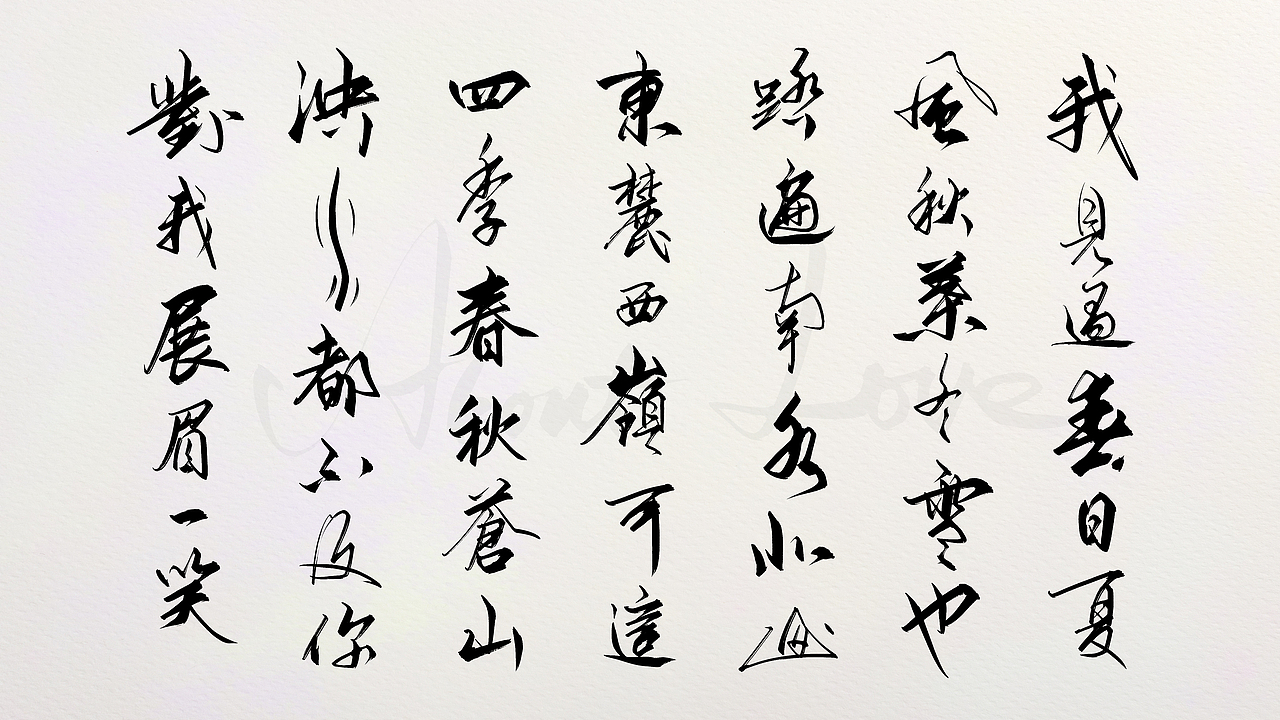 我見過春日夏
風秋葉冬雪也
踏遍南水北山
東麓西嶺可這
四季春秋蒼山
泱水都不及你
對我展眉一笑
About Love